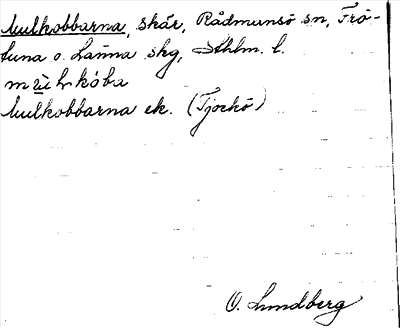 Mulkobbarna, skär, Rådmansö sn, Frö-
tuna o. Länna skg, Sthlm. l.
Mulkobbarna ek. (Tjockö)
O. Lundberg